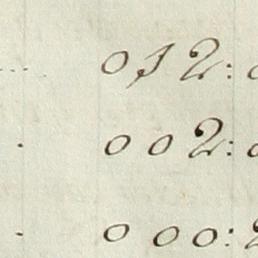 ... 012:
. 002:
. 000: